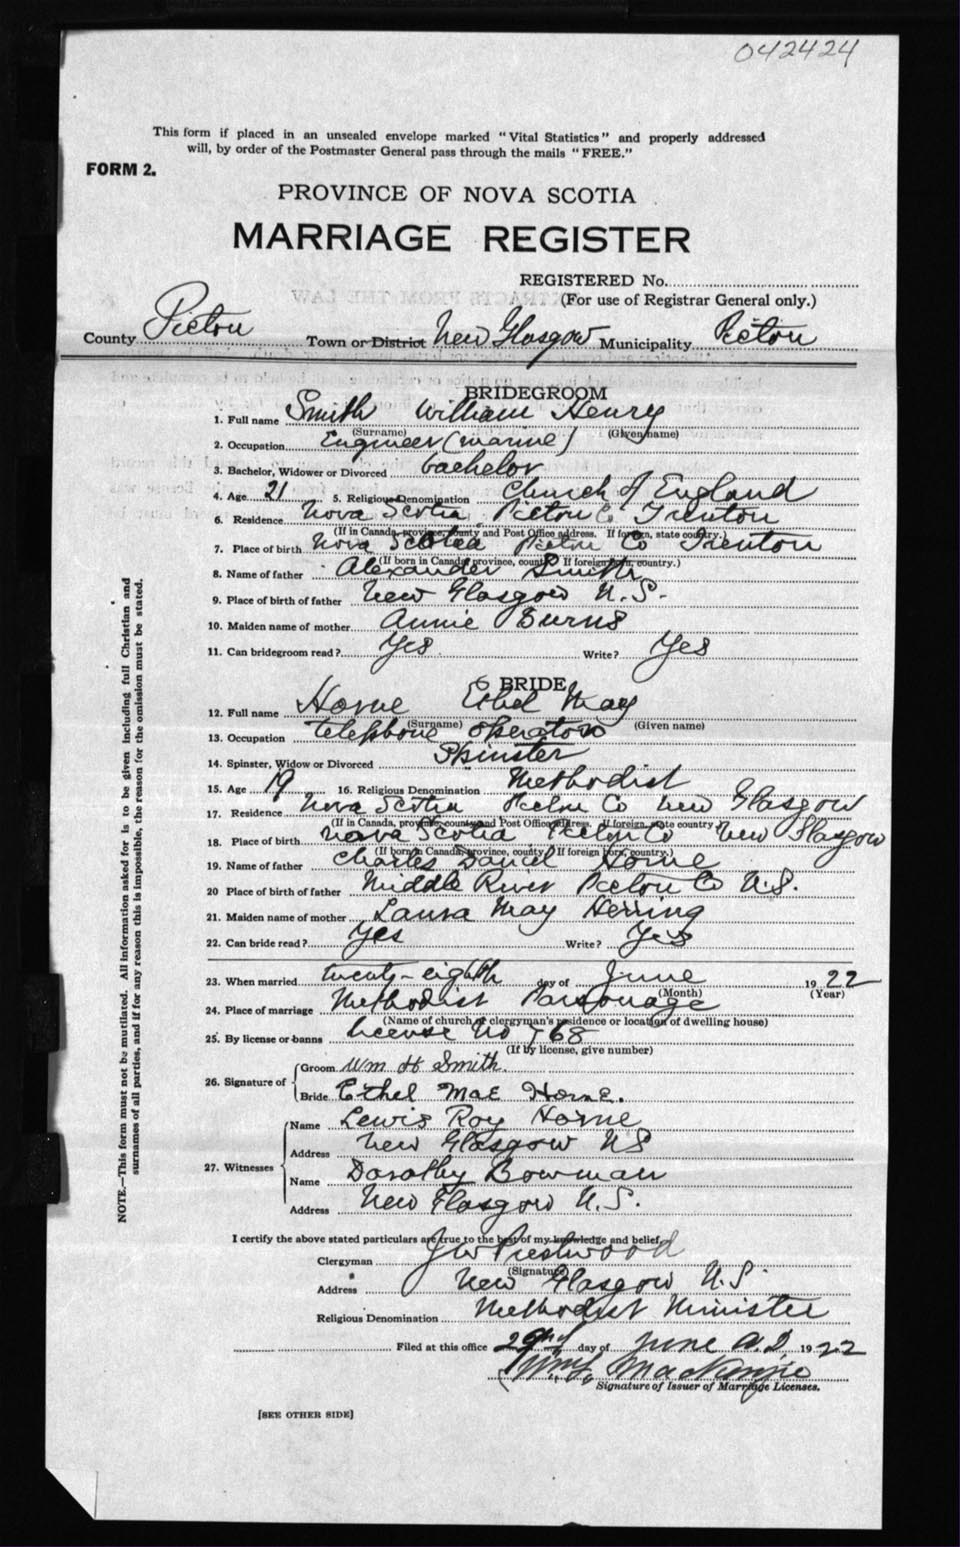 042424
This form if placed in an unsealed envelope marked "Vital Statistics" and properly addressed
will, by order of the Postmaster General pass through the mails "FREE."
FORM 2.
PROVINCE OF NOVA SCOTIA
MARRIAGE REGISTER
REGISTERED No.
(For use of Registrar General only.)
County Pictou Town or District New Glasgow Municipality Pictou
BRIDEGROOM
1. Full name Smith William Henry
(Surname) (Given name)
2. Occupation Engineer (marine)
3. Bachelor, Widower or Divorced bachelor
4. Age 21 5. Religious Denomination Church of England
6. Residence Nova Scotia Pictou Co Trenton
(If in Canada, province, county and Post Office address. If foreign, state country.)
7. Place of birth Nova Scotia Pictou Co Trenton
(If born in Canada, province, county. If foreign born, country.)
8. Name of father Alexander Smith
9. Place of birth of father New Glasgow N.S.
10. Maiden name of mother Annie Burns
11. Can bridegroom read? Yes Write? Yes
BRIDE
12. Full name Horne Ethel May
(Surname) (Given name)
13. Occupation telephone operator
14. Spinster, Widow or Divorced Spinster
15. Age 19 16. Religious Denomination Methodist
17. Residence Nova Scotia Pictou Co New Glasgow
(If in Canada, province, county and Post Office address. If foreign, state country.)
18. Place of birth Nova Scotia Pictou Co New Glasgow
(If born in Canada, province, county. If foreign born, country.)
19. Name of father Charles Daniel Horne
20 Place of birth of father Middle River Pictou Co N.S.
21. Maiden name of mother Laura May Herring
22. Can bride read? Yes Write? Yes
23. When married twenty-eighth day of June 1922
(Month) (Year)
24. Place of marriage Methodist Parsonage
(Name of church or clergyman's residence or location of dwelling house)
25. By license or banns license No 768
(If by license, give number)
26. Signature of Groom Wm H Smith.
Bride Ethel Mae Horne.
27. Witnesses Name Lewis Roy Horne
Address New Glasgow NS
Name Dorothy Bowman
Address New Glasgow N.S.
I certify the above stated particulars are true to the best of my knowledge and belief,
Clergyman J W Prestwood
(Signature)
Address New Glasgow N.S.
Religious Denomination Methodist Minister
Filed at this office 29th day of June A.D. 1922
MacKenzie
Signature of Issuer of Marriage Licenses.
[SEE OTHER SIDE]
NOTE.—This form must not be mutilated. All information asked for is to be given including full Christian and
surnames of all parties, and if for any reason this is impossible, the reason for the omission must be stated.